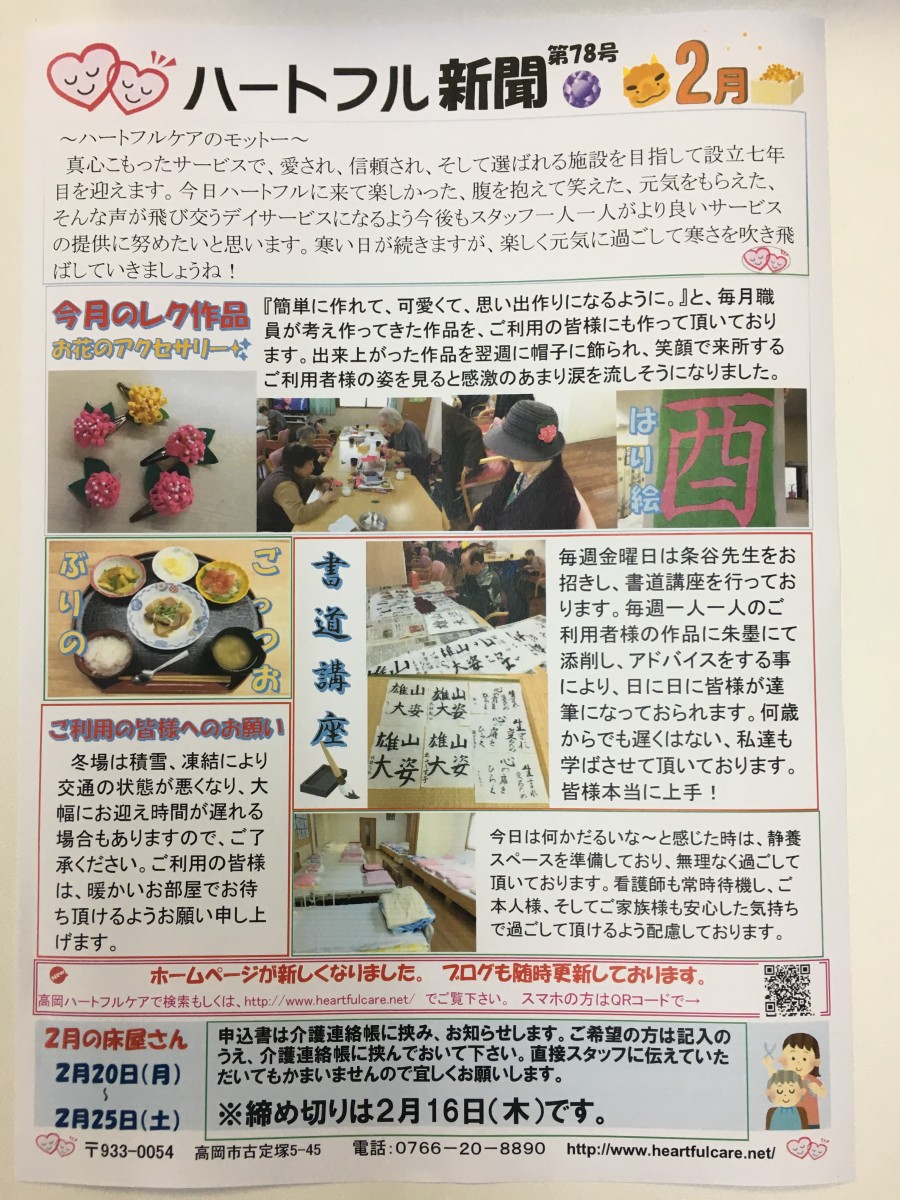 ハートフル新聞 第78号 2月
～ハートフルケアのモットー～
真心こもったサービスで、愛され、信頼され、そして選ばれる施設を目指して設立七年
目を迎えます。今日ハートフルに来て楽しかった、腹を抱えて笑えた、元気をもらえた、
そんな声が飛び交うデイサービスになるよう今後もスタッフ一人一人がより良いサービス
の提供に努めたいと思います。寒い日が続きますが、楽しく元気に過ごして寒さを吹き飛
ばしていきましょうね！
今月のレク作品
お花のアクセサリー
『簡単に作れて、可愛くて、思い出作りになるように。』と、毎月職
員が考え作ってきた作品を、ご利用の皆様にも作って頂いており
ます。出来上がった作品を翌週に帽子に飾られ、笑顔で来所する
ご利用者様の姿を見ると感激のあまり涙を流しそうになりました。
はり絵
酉
ごっつお
ぶりの
書道講座
雄大 山姿
雄大 山姿
雄大 山姿
雄大 山姿
毎週金曜日は粂谷先生をお
招きし、書道講座を行ってお
ります。毎週一人一人のご
利用者様の作品に朱墨にて
添削し、アドバイスをする事
により、日に日に皆様が達
筆になっておられます。何歳
からでも遅くはない、私達も
学ばさせて頂いております。
皆様本当に上手！
ご利用の皆様へのお願い
冬場は積雪、凍結により
交通の状態が悪くなり、大
幅にお迎え時間が遅れる
場合もありますので、ご了
承ください。ご利用の皆様
は、暖かいお部屋でお待
ち頂けるようお願い申し上
げます。
今日は何かだるいな～と感じた時は、静養
スペースを準備しており、無理なく過ごして
頂いております。看護師も常時待機し、ご
本人様、そしてご家族様も安心した気持ち
で過ごして頂けるよう配慮しております。
ホームページが新しくなりました。 ブログも随時更新しております。
高岡ハートフルケアで検索もしくは、http://www.heartfulcare.net/ でご覧下さい。 スマホの方はQRコードで→
2月の床屋さん
2月20日(月)
～
2月25日(土)
申込書は介護連絡帳に挟み、お知らせします。ご希望の方は記入の
うえ、介護連絡帳に挟んでおいて下さい。直接スタッフに伝えていた
だいてもかまいませんので宜しくお願いします。
※締め切りは2月16日(木)です。
〒933-0054 高岡市古定塚5-45 電話：0766-20-8890 http://www.heartfulcare.net/